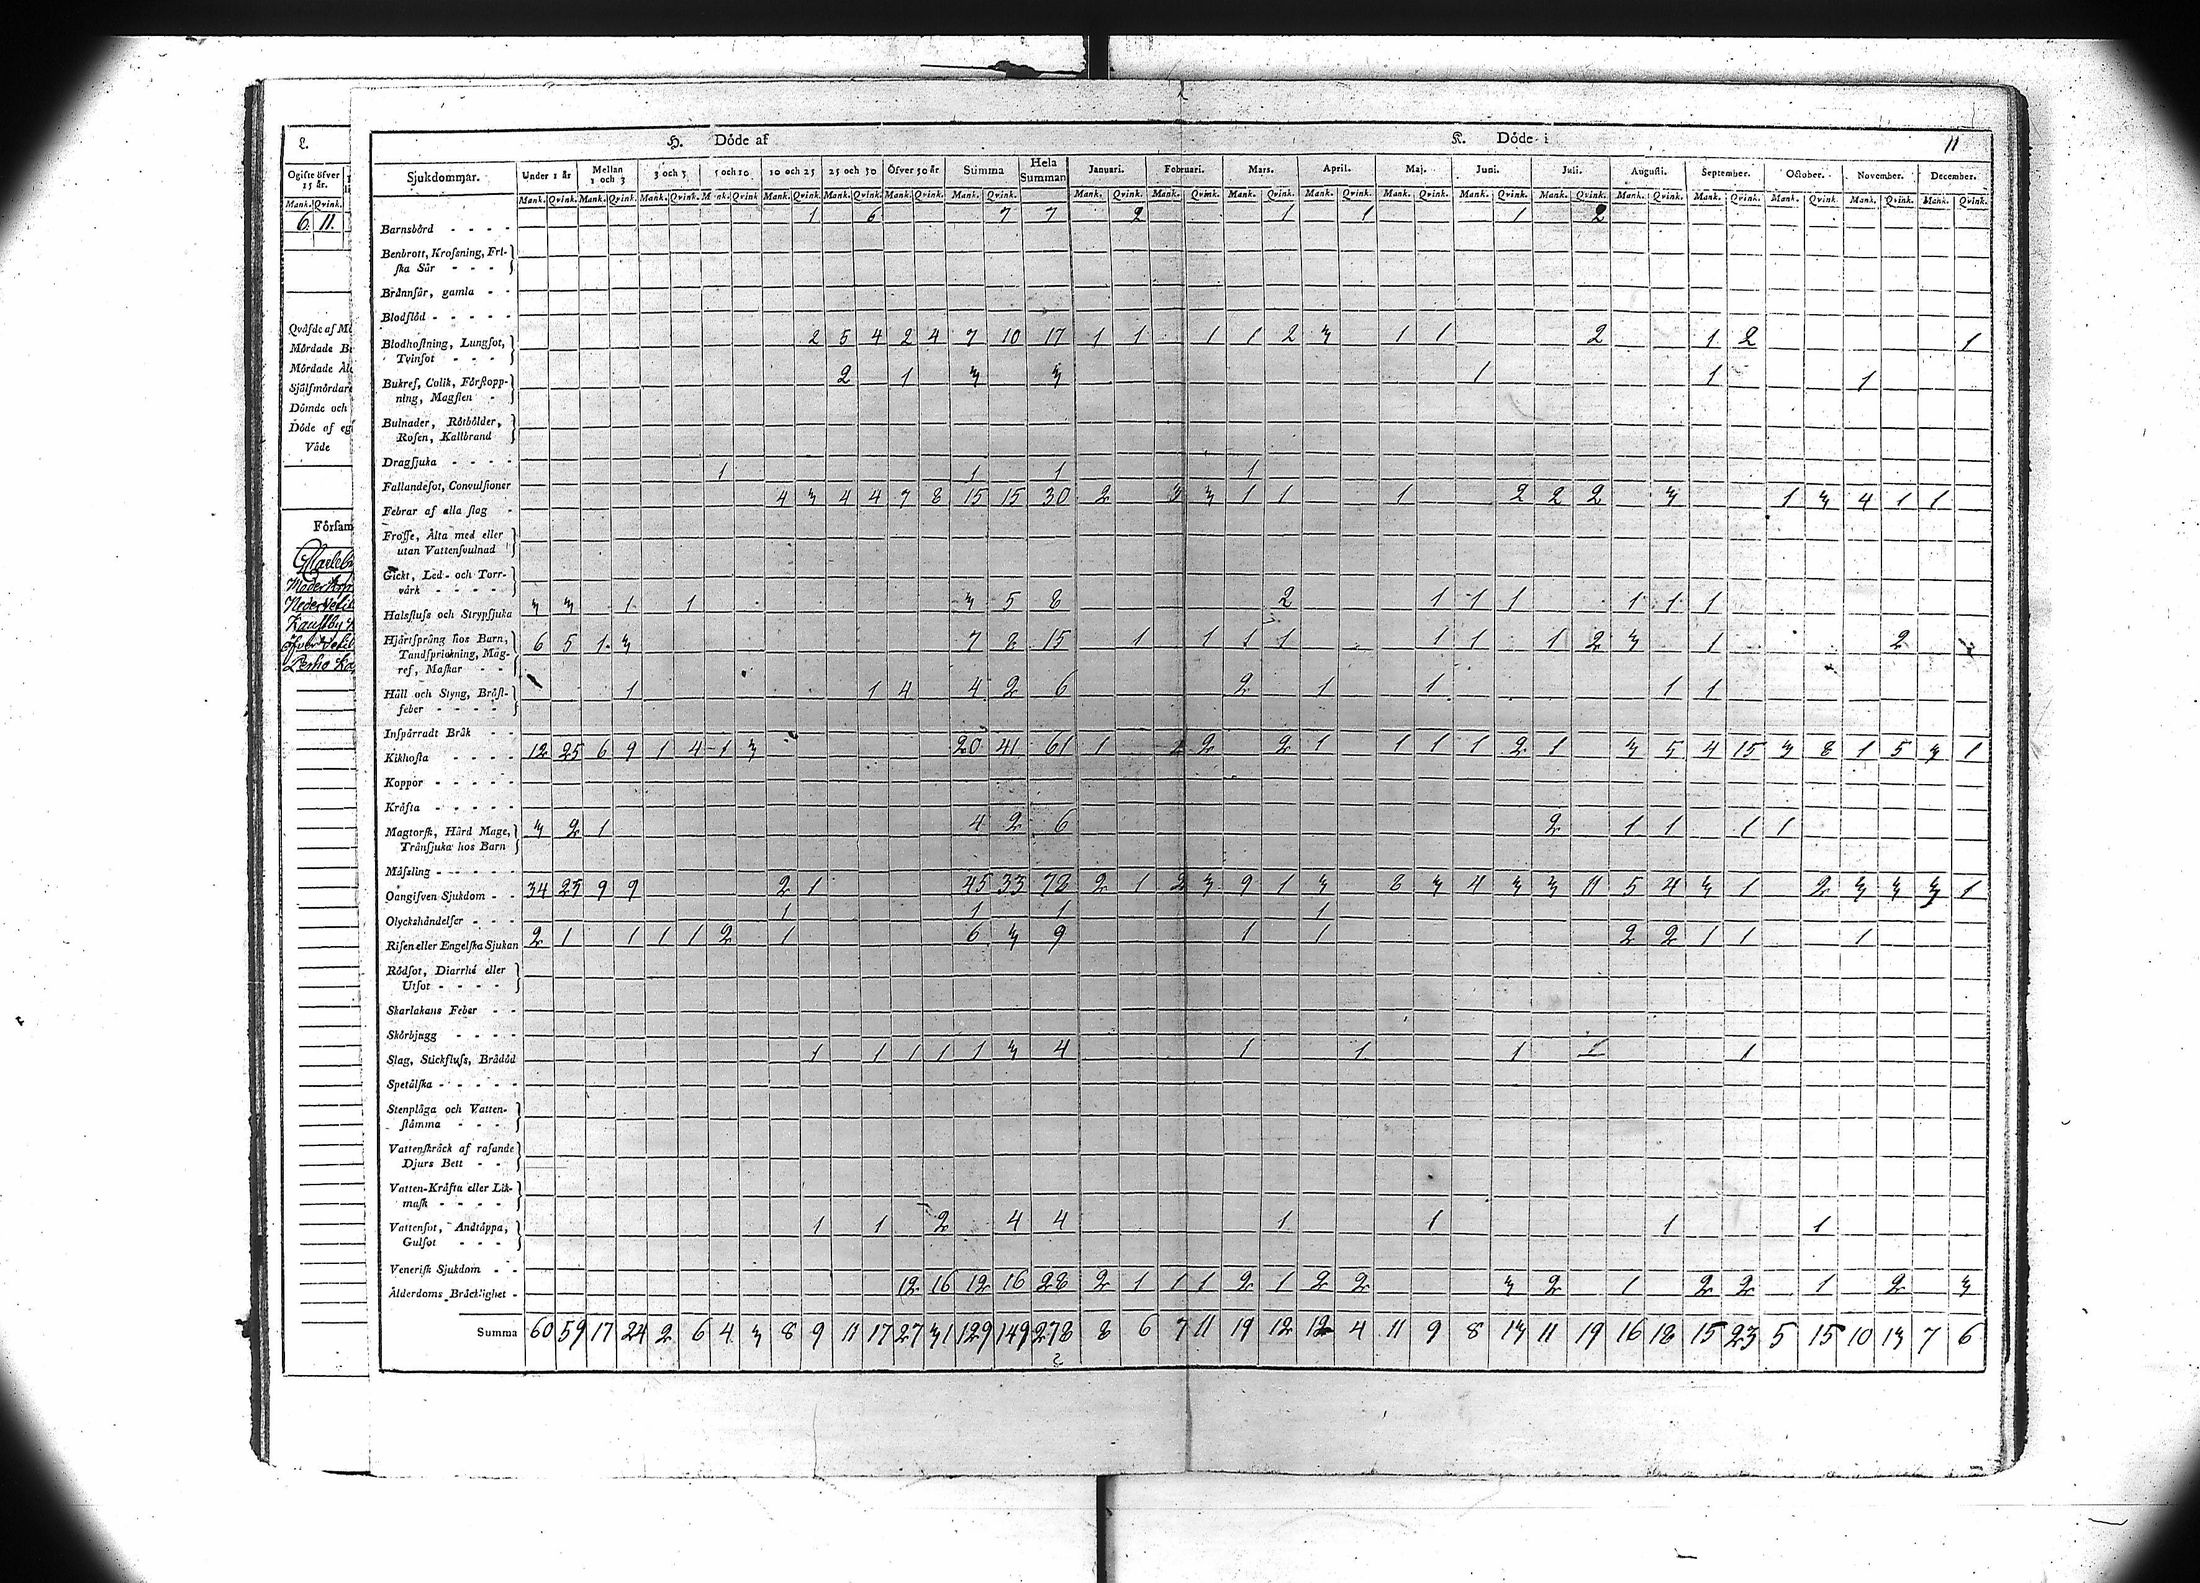 2.
H. Döde af
K. Döde i
11
Ogifte öfver 15 år.
Mank. Qvink.
6. 11.
Qväfde af
Mördade
Mördade
Sjålfmördare
Dömde och
Döde af
Våde
Sjukdommar. Under 1 år Mellan 1 och 3 3 och 5 5 och 10 10 och 25 25 och 50 Öfver 50 år Summa Hela Summan Januari. Februari. Mars. April. Maj. Juni. Juli. Augusti. September. October. November. December.
Mank. Qvink. Mank. Qvink. Mank. Qvink. Mank. Qvink. Mank. Qvink. Mank. Qvink. Mank. Qvink. Mank. Qvink. Mank. Qvink. Mank. Qvink. Mank. Qvink. Mank. Qvink. Mank. Qvink. Mank. Qvink. Mank. Qvink. Mank. Qvink. Mank. Qvink. Mank. Qvink. Mank. Qvink. Mank. Qvink.
Barnsbörd - - - - 1 6 7 7 2 1 1 1 2
Benbrott, Krofsning, Fri-
ska Sår - - -
Brännsår, gamla - -
Blodflöd - - - - -
Blodhostning, Lungsot, 2 5 4 2 4 7 10 17 1 1 1 1 2 3 1 1 2 1 2 1
Tvinsot - - -
Bukref, Colik, Förstopp- 2 1 3 3 1 1 1
ning, Magsten -
Bulnader, Rötbölder,
Rosen, Kallbrand
Dragsjuka - - - -
Fallandesot, Convulsioner 1 1 1 1
Febrar af alla slag - 4 3 4 4 7 8 15 15 30 2 3 3 1 1 1 2 2 2 3 1 3 4 1 1
Frosse, Älta med eller
utan Vattensvulnad
Gickt, Led- och Torr-
värk - - - -
Halsfluss och Strypsjuka 3 3 1 1 3 5 8 2 1 1 1 1 1 1
Hjärtsprång hos Barn, 6 5 1 3 7 8 15 1 1 1 1 1 1 1 2 3 1 2
Tandsprickning, Mag-
ref, Maskar - -
Håll och Styng, Bröst- 1 1 4 4 2 6 2 1 1 1 1
feber - - - -
Inspärradt Bråk - -
Kikhosta - - - - 12 25 6 9 1 4 1 3 20 41 61 1 2 2 2 1 1 1 1 2 1 3 5 4 15 3 8 1 5 3 1
Koppor - - - - -
Kräfta - - - - -
Magtorsk, Hård Mage, 3 2 1 4 2 6 2 1 1 1 1
Tränsjuka hos Barn
Mässling - - - - -
Oangifven Sjukdom - - 34 23 9 9 2 1 45 33 78 2 1 2 3 9 1 3 8 3 4 3 3 11 5 4 3 1 2 3 3 3 1
Olyckshändelser - - - 1 1 1 1
Risen eller Engelska Sjukan 2 1 1 1 1 2 1 6 3 9 1 1 2 2 1 1 1
Rödsot, Diarrhé eller
Utsot - - - -
Skarlakans Feber - -
Skörbjugg - - - -
Slag, Stickfluss, Brådöd 1 1 1 1 1 3 4 1 1 1 1
Spetälska - - - - -
Stenplåga och Vatten-
stämma - - -
Vattenskräck af rasande
Djurs Bett - -
Vatten-Kräfta eller Lik-
mask - - - -
Vattensot, Andtäppa, 1 1 2 4 4 1 1 1 1
Gulsot - - -
Venerisk Sjukdom - -
Ålderdoms Bräcklighet - 12 16 12 16 28 2 1 1 1 2 1 2 2 3 2 1 2 2 1 2 3
Summa 60 59 17 24 2 6 4 3 8 9 11 17 27 31 129 149 278 8 6 7 11 19 12 12 4 11 9 8 13 11 19 16 18 15 23 5 15 10 13 7 6